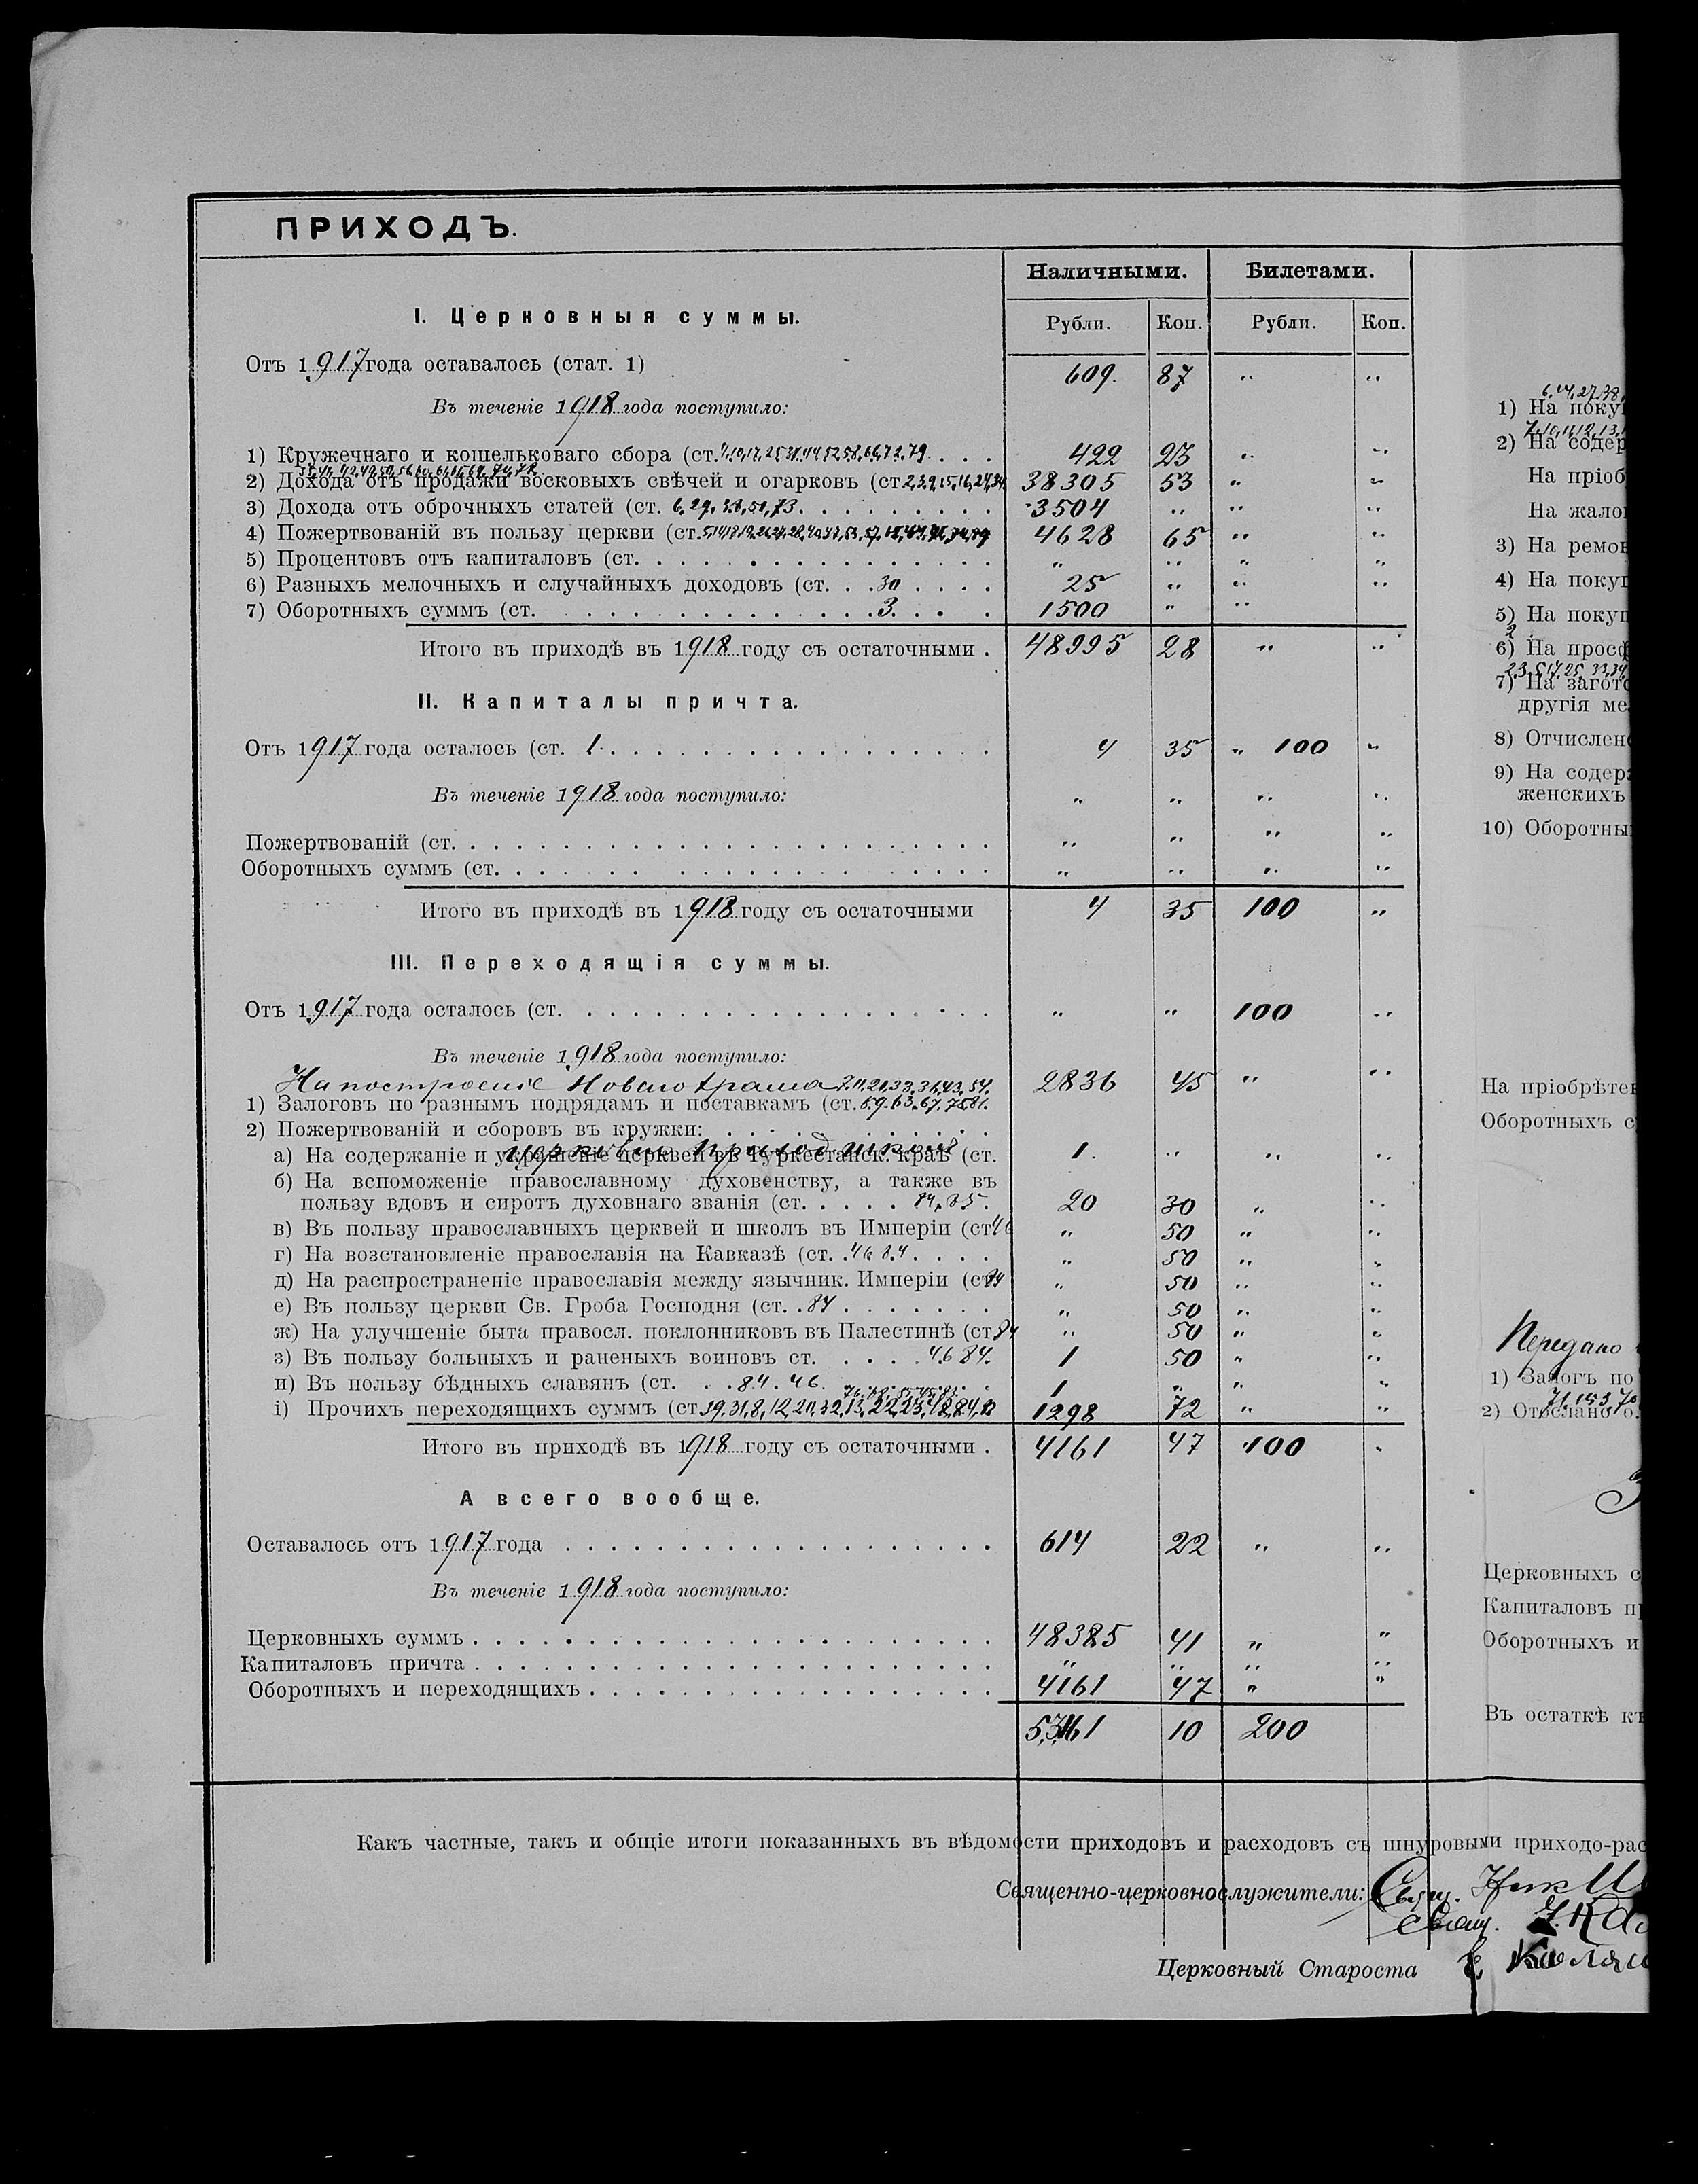 ПРИХОДЪ.
Наличными. Билетами.
Рубли. Коп. Рубли. Коп.
I. Церковныя суммы.
Отъ 1917 года оставалось (стат. 1) 609. 87 " "
Въ теченіе 1918 года поступило:
1) Кружечнаго и кошельковаго сбора (ст. 422 23 " "
2) Дохода отъ продажи восковыхъ свѣчей и огарковъ (ст. 2,3,9,15,16,24,34 38305 53 " "
3) Дохода отъ оброчныхъ статей (ст. 6, 29, 38, 50, 73 3504 " " "
4) Пожертвованій въ пользу церкви (ст. 4628 65 " "
5) Процентовъ отъ капиталовъ (ст. " " " "
6) Разныхъ мелочныхъ и случайныхъ доходовъ (ст. 30 25 " " "
7) Оборотныхъ суммъ (ст. 3. 1500 " "
Итого въ приходѣ въ 1918 году съ остаточными . 48995 28 " "
II. Капиталы причта.
Отъ 1917 года осталось (ст. 1. 4 35 " 100 "
Въ теченіе 1918 года поступило: " " " "
Пожертвованій (ст. " " " "
Оборотныхъ суммъ (ст. " " " "
Итого въ приходѣ въ 1918 году съ остаточными 4 35 100 "
III. Переходящія суммы.
Отъ 1917 года осталось (ст. " " 100 "
Въ теченіе 1918 года поступило:
На построеніе Новаго храма 2836 45 " "
1) Залоговъ по разнымъ подрядамъ и поставкамъ (ст.
2) Пожертвованій и сборовъ въ кружки:
а) На содержаніе и украшеніе церквей въ Туркестанск. краѣ (ст. 1. " " "
б) На вспоможеніе православному духовенству, а также въ
пользу вдовъ и сиротъ духовнаго званія (ст. 84, 85. 20 30 " "
в) Въ пользу православныхъ церквей и школъ въ Имперіи (ст. 46 " 50 " "
г) На возстановленіе православія на Кавказѣ (ст. 46 84 " 50 " "
д) На распространеніе православія между язычник. Имперіи (ст. 84 " 50 " "
е) Въ пользу церкви Св. Гроба Господня (ст. 84 " 50 " "
ж) На улучшеніе быта правосл. поклонниковъ въ Палестинѣ (ст. 84 " 50 " "
з) Въ пользу больныхъ и раненыхъ воиновъ ст. 46 84. 1 50 " "
и) Въ пользу бѣдныхъ славян (ст. 84. 46. 1 " " "
і) Прочихъ переходящихъ суммъ (ст. 1298 72 " "
Итого въ приходѣ въ 1918 году съ остаточными . 4161 47 100 "
А всего вообще.
Оставалось отъ 1917 года 614 22 " "
Въ теченіе 1918 года поступило:
Церковныхъ суммъ 48385 41 " "
Капиталовъ причта " " " "
Оборотныхъ и переходящихъ 4161 47 " "
53161 10 200
Какъ частные, такъ и общіе итоги показанныхъ въ вѣдомости приходовъ и расходовъ съ шнуровыми приходо-рас
Священно-церковнослужители: Свящ.
Свящ.
Церковный Староста
6, 14, 27, 38,
1) На поку
7, 10, 11, 12, 13, 1
2) На содер
На пріоб
На жало
3) На ремон
4) На покуп
5) На покуп
6) На просф
7) На загото
другія ме
8) Отчислен
9) На содерж
женскихъ
10) Оборотны
На пріобрѣтен
Оборотныхъ с
Передано
1) Залогъ по
2) Отослано о
Церковныхъ с
Капиталовъ п
Оборотныхъ и
Въ остаткѣ къ